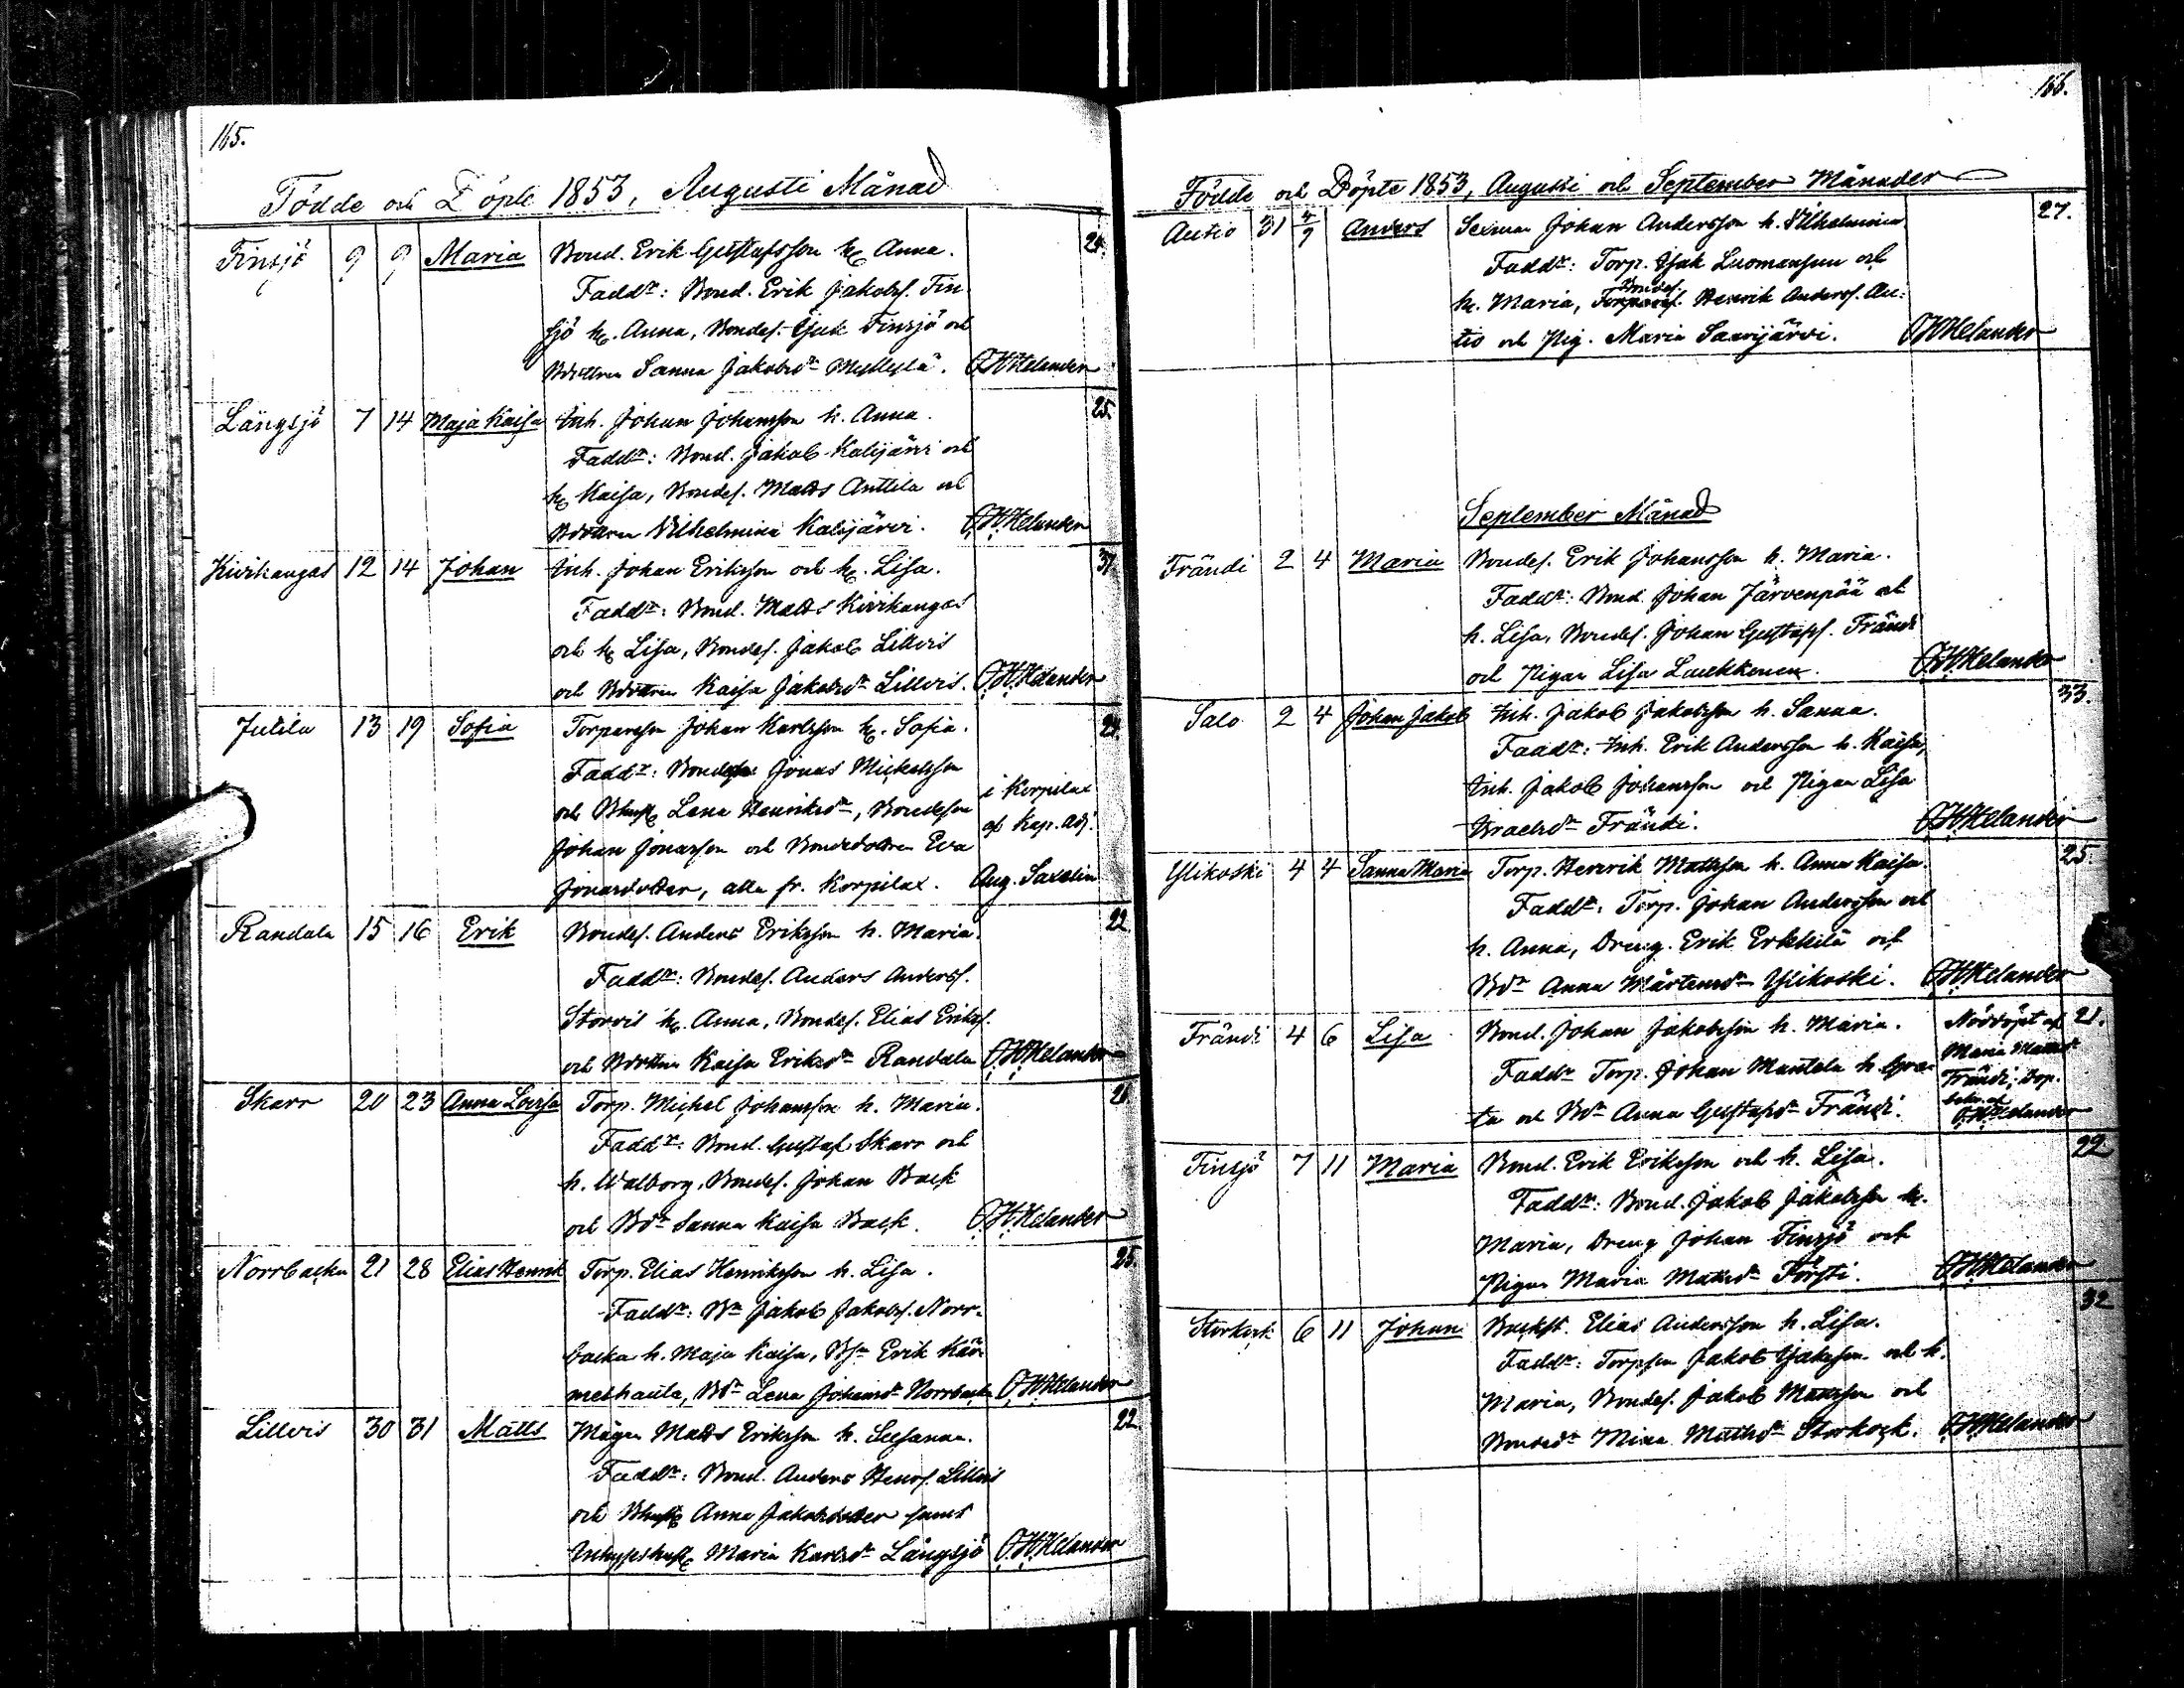 165.
Födde och Döpte 1853, Augusti Månad
Finsjö 9 9 Maria Bond. Erik Gustafsson h. Anna. 24.
Faddr: Bond. Erik Jakobs. Fin
sjö h. Anna, Bondes. Isak Finsjö och
Bdottren Sanna Jakobsdr Myllylä. O.H.Helander
Långsjö 7 14 Maja Kaisa Inh. Johan Johansson h. Anna. 25.
Faddr: Bond. Jakob Kalijärvi och
h. Kaisa, Bondes. Matts Anttila och
Bdottren Vilhelmina Kalijärvi. O.H.Helander
Kivikangas 12 14 Johan Inh. Johan Eriksson och h. Lisa. 37.
Faddr: Bond. Matts Kivikangas
och h. Lisa, Bondes. Jakob Lillvis
och Bdottren Kaisa Jakobsdr Lillvis. O.H.Helander
Jutila 13 19 Sofia Torpareson Johan Karlsson h. Sofia. 24.
Faddr: Bondeson Jonas Mickelsson
och Bhust. Lena Henriksdr, Bondeson
Johan Jonasson och Bondedottren Eva
Jonasdotter, alla fr. Korpilax.
i Korpilax
af Kap. Adj.
Aug. Saxelin
Randala 15 16 Erik Bondes. Anders Eriksson h. Maria. 22
Faddr: Bondes. Anders Anders.
Storvis h. Anna, Bondes. Elias Eriks.
och Bdottren Kaisa Eriksdr Randala O.H.Helander
Skarr 20 23 Anna Lovisa Torp. Michel Johansson h. Maria. 21
Faddr: Bond. Gustaf Skarr och
h. Walborg, Bondes. Johan Back
och Bdr Sanna Kaisa Back. O.H.Helander
Norrbacka 21 28 Elias Henrik Torp. Elias Henriksson h. Lisa. 25.
Faddr: Bn Jakob Jakobs. Norr-
backa h. Maja Kaisa, Bsn Erik Kär
meshauta, Bdr Lena Johansdr Norrbacka O.H.Helander
Lillvis 30 31 Matts Mågen Matts Eriksson h. Susanna. 22.
Faddr: Bond. Anders Henrs. Lillvis
och Bhust. Anna Jakobsdotter samt
Inhyseshust. Maria Karlsdr Långsjö O.H.Helander
166.
Födde och Döpte 1853, Augusti och September Månader
Autio 31 4/9 Anders Sexman Johan Andersson h. Vilhelmina 27.
Faddr: Torp. Isak Luomansuu och
h. Maria, Bondes. Henrik Anders. Au-
tio och Pig. Maria Saarijärvi. O.H.Helander
September Månad
Frändi 2 4 Maria Bondes. Erik Johansson h. Maria.
Faddr: Bond. Johan Järvenpää och
h. Lisa, Bondes. Johan Gustafs. Frändi
och Pigan Lisa Laukkonen. O.H.Helander
Salo 2 4 Johan Jakob Inh. Jakob Jakobsson h. Sanna. 33.
Faddr: Inh. Erik Andersson h. Kaisa,
Inh. Jakob Johansson och Pigan Lisa
Israelsdr Frändi. O.H.Helander
Ylikoski 4 4 Sanna Maria Torp. Henrik Mattsson h. Anna Kaisa. 25.
Faddr: Torp. Johan Andersson och
h. Anna, Dreng. Erik Erkkilä och
Bdr Anna Mårtensdr Ylikoski. O.H.Helander
Frändi 4 6 Lisa Bond. Johan Jakobsson h. Maria. 21.
Faddr Torp. Johan Mantela h. Gre-
ta och Bdr Anna Gustafsdr Frändi.
Nöddöpt af
Maria Mattsdr
Frändi, Dop.
bekr. af
O.H.Helander
Finsjö 7 11 Maria Bond. Erik Eriksson och h. Lisa. 22
Faddr: Bond. Jakob Jakobsson h.
Maria, Dreng Johan Finsjö och
Pigan Maria Mattsdr Försti. O.H.Helander
Storkock 6 11 Johan Backst. Elias Andersson h. Lisa. 32
Faddr: Torpson Jakob Isaksson och h.
Maria, Bondes. Jakob Mattsson och
Bondedr Mina Mattsdr Storkock. O.H.Helander